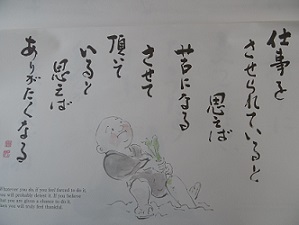 仕事を
させられていると
思えば
苦になる
させて
頂いて
いると
思えば
ありがたくなる
Whatever you do if you feel forced to do it
you will probably detest it. If you believe
that you are given a chance to do it
then you will truly feel thankful.